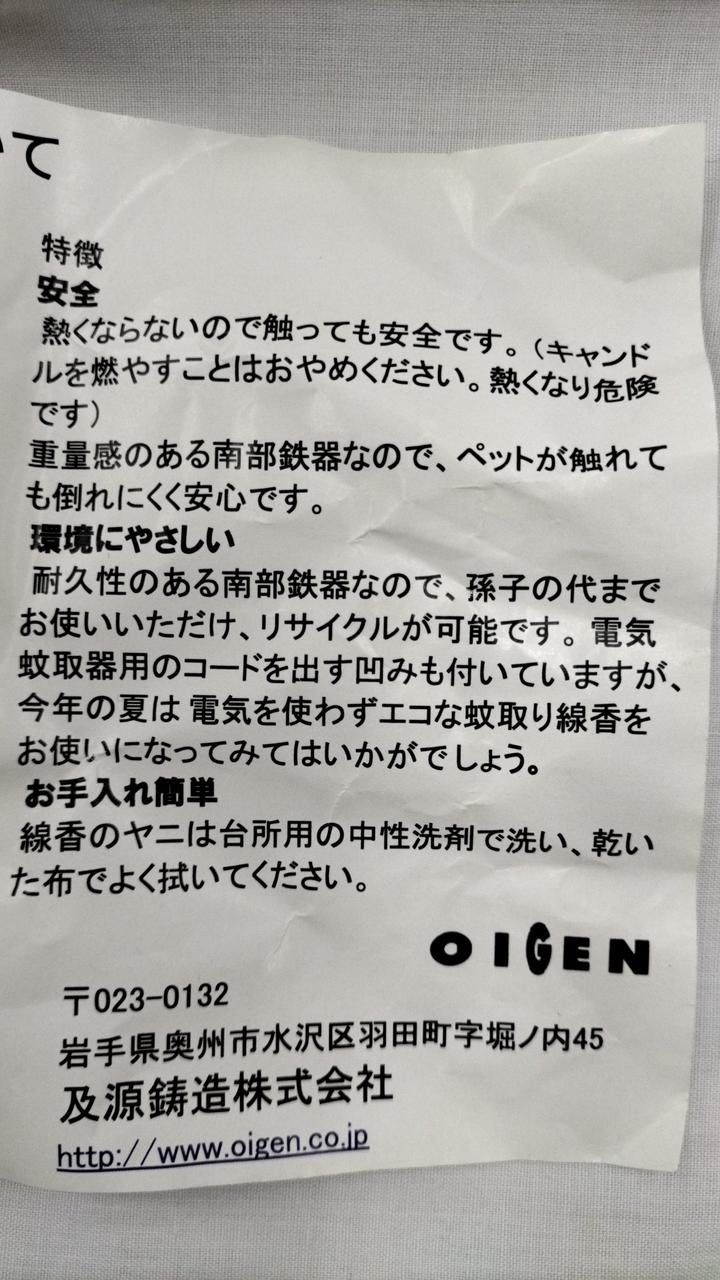 いて
特徴
安全
熱くならないので触っても安全です。（キャンド
ルを燃やすことはおやめください。熱くなり危険
です）
重量感のある南部鉄器なので、ペットが触れて
も倒れにくく安心です。
環境にやさしい
耐久性のある南部鉄器なので、孫子の代まで
お使いいただけ、リサイクルが可能です。電気
蚊取器用のコードを出す凹みも付いていますが、
今年の夏は 電気を使わずエコな蚊取り線香を
お使いになってみてはいかがでしょう。
お手入れ簡単
線香のヤニは台所用の中性洗剤で洗い、乾い
た布でよく拭いてください。
OIGEN
〒023-0132
岩手県奥州市水沢区羽田町字堀ノ内45
及源鋳造株式会社
http://www.oigen.co.jp